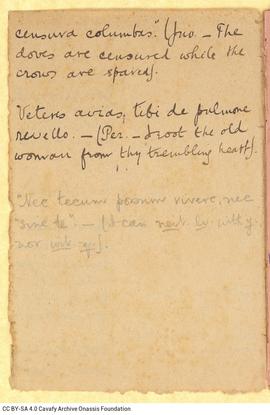 censura columbas". (Juv. – The
doves are censured while the
crows are spared).
Veteres avias, tibi de pulmone
revello. – (Per. – I root the old
woman from thy trembling heart).
"Nec tecum possum vivere, nec
"sine te". – (I can
nor
CC BY-SA 4.0 Cavafy Archive Onassis Foundation